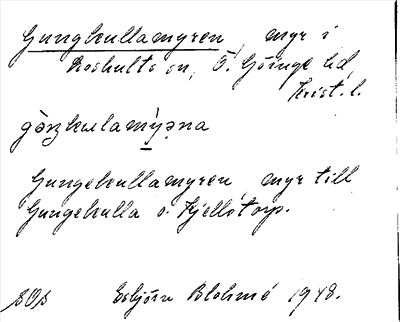 Gungkullamyren, myr i
Loshults sn, Ö. Göinge hd,
Krist. l.
Gungekullamyren, myr till
Gungekulla o. Kjellstorp.
Esbjörn Blohmé 1948.